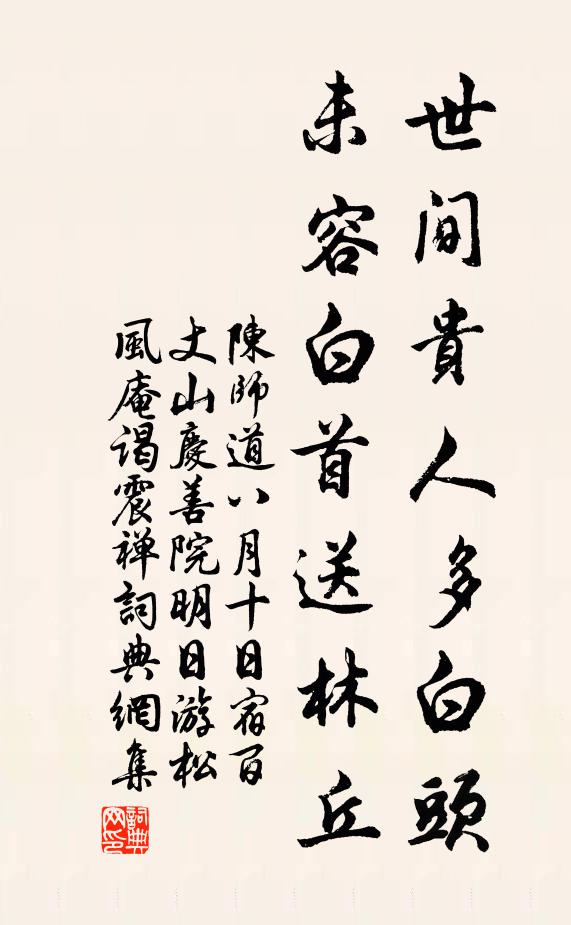 世間貴人多白頭
未容白首送林丘
陳師道八月十日宿百
丈山慶善院明日游松
風庵谒震禅詞典網集
詞典網印